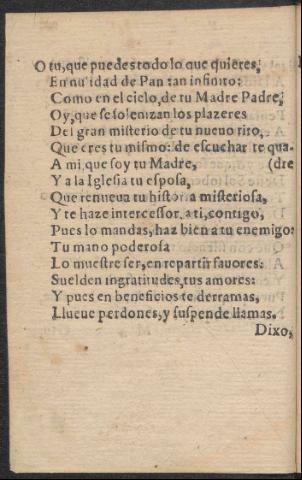 O tu, que puedes todo lo que quieres;
En nu idad de Pan tan infinito:
Como en el cielo, de tu Madre Padre;
Oy, que se solenizan los plazeres
Del gran misterio de tu nueuo rito,
Que eres tu mismo: de escuchar te qua-
A mi, que soy tu Madre, (dre
Y a la Iglesia tu esposa,
Que renueua tu historia misteriosa,
Y te haze intercessora ti, contigo,
Pues lo mandas, haz bien a tu enemigo:
Tu mano poderosa
Lo muestre ser, en repartir fauores:
Suelden ingratitudes, tus amores:
Y pues en beneficios te derramas,
Llueue perdones, y suspende llamas.
Dixo,